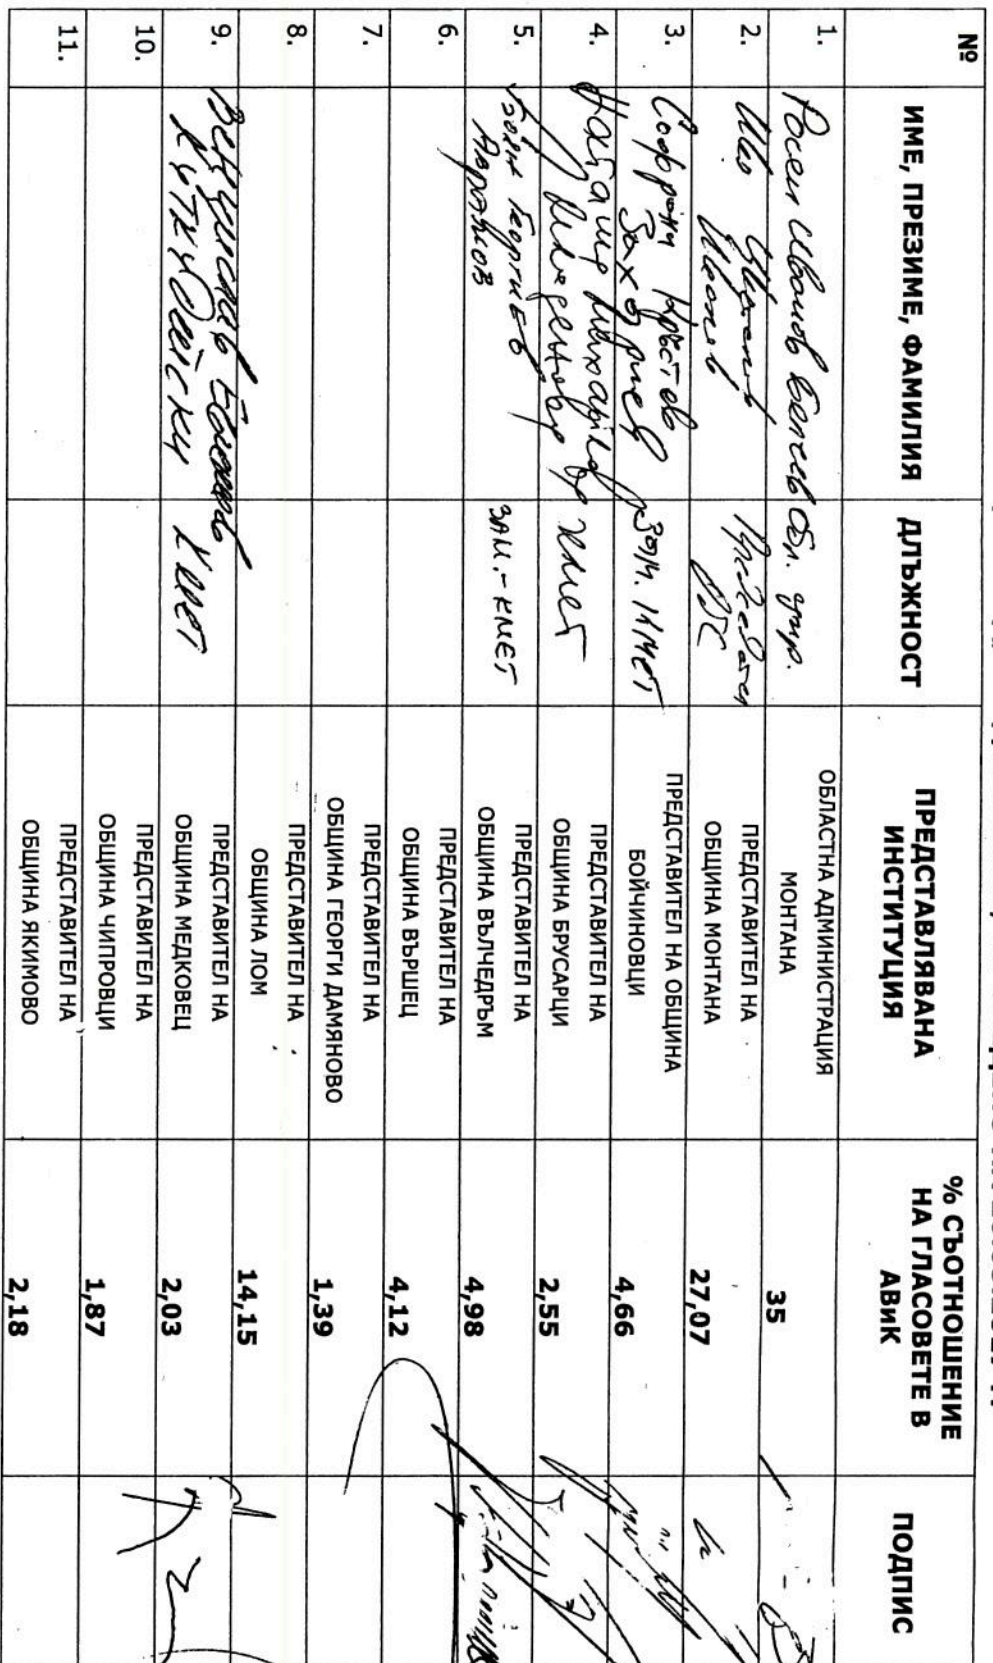 № ИМЕ, ПРЕЗИМЕ, ФАМИЛИЯ ДЛЪЖНОСТ ПРЕДСТАВЛЯВАНА ИНСТИТУЦИЯ % СЪОТНОШЕНИЕ НА ГЛАСОВЕТЕ В АВиК ПОДПИС
1. Росен Иванов Белчев Обл. упр. ОБЛАСТНА АДМИНИСТРАЦИЯ МОНТАНА 35
2. ПРЕДСТАВИТЕЛ НА ОБЩИНА МОНТАНА 27,07
3. Софрони Кръстев Захариев Зам. Кмет ПРЕДСТАВИТЕЛ НА ОБЩИНА БОЙЧИНОВЦИ 4,66
4. Наташа Михайлова Младенова кмет ПРЕДСТАВИТЕЛ НА ОБЩИНА БРУСАРЦИ 2,55
5. Георгиев ЗАМ.-КМЕТ ПРЕДСТАВИТЕЛ НА ОБЩИНА ВЪЛЧЕДРЪМ 4,98
6. ПРЕДСТАВИТЕЛ НА ОБЩИНА ВЪРШЕЦ 4,12
7. ПРЕДСТАВИТЕЛ НА ОБЩИНА ГЕОРГИ ДАМЯНОВО 1,39
8. ПРЕДСТАВИТЕЛ НА ОБЩИНА ЛОМ 14,15
9. Кмет ПРЕДСТАВИТЕЛ НА ОБЩИНА МЕДКОВЕЦ 2,03
10. ПРЕДСТАВИТЕЛ НА ОБЩИНА ЧИПРОВЦИ 1,87
11. ПРЕДСТАВИТЕЛ НА ОБЩИНА ЯКИМОВО 2,18